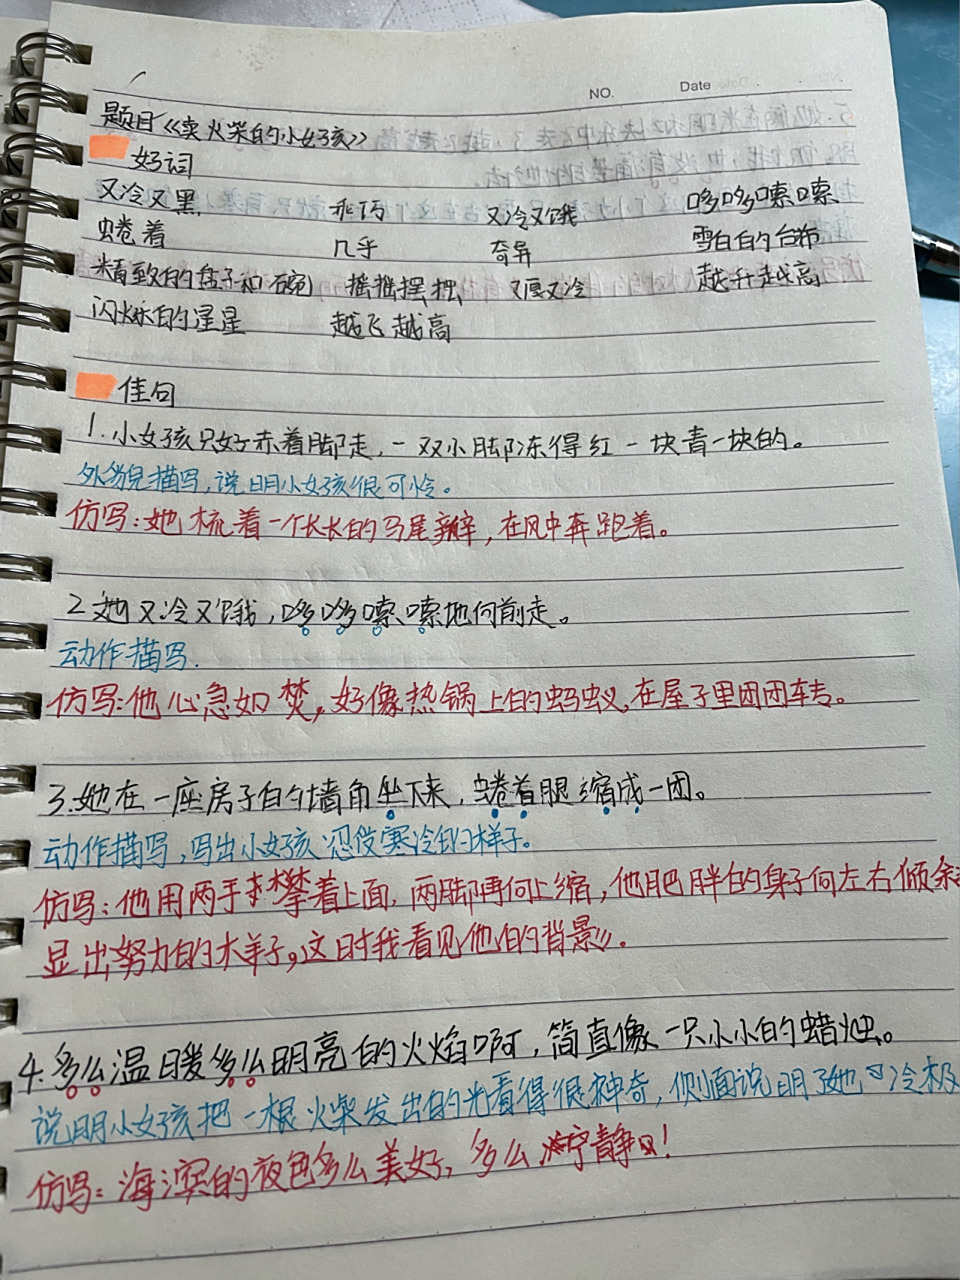 NO.
Date
题目《卖火柴的小女孩》
好词
又冷又黑 乖巧 又冷又饿 哆哆嗦嗦
蜷着 几乎 奇异 雪白的台布
精致的盘子和碗 摇摇摆摆 又厚又冷 越升越高
闪烁的星星 越飞越高
佳句
1.小女孩只好赤着脚走,一双小脚冻得红一块青一块的。
外貌描写,说明小女孩很可怜。
仿写:她梳着一个长长的马尾辫,在风中奔跑着。
2 她又冷又饿,哆哆嗦嗦地向前走。
动作描写.
仿写:他心急如焚,好像热锅上的蚂蚁,在屋子里团团转。
3.她在一座房子的墙角坐下来,蜷着腿缩成一团。
动作描写,写出小女孩忍受寒冷的样子。
仿写:他用两手攀着上面,两脚再向上缩,他肥胖的身子向左右倾
显出努力的样子,这时我看见他的背影。
4.多么温暖多么明亮的火焰啊,简直像一只小小的蜡烛。
说明小女孩把一根火柴发出的光看得很神奇,侧面说明了她 冷极
仿写:海滨的夜色多么美好,多么宁静!